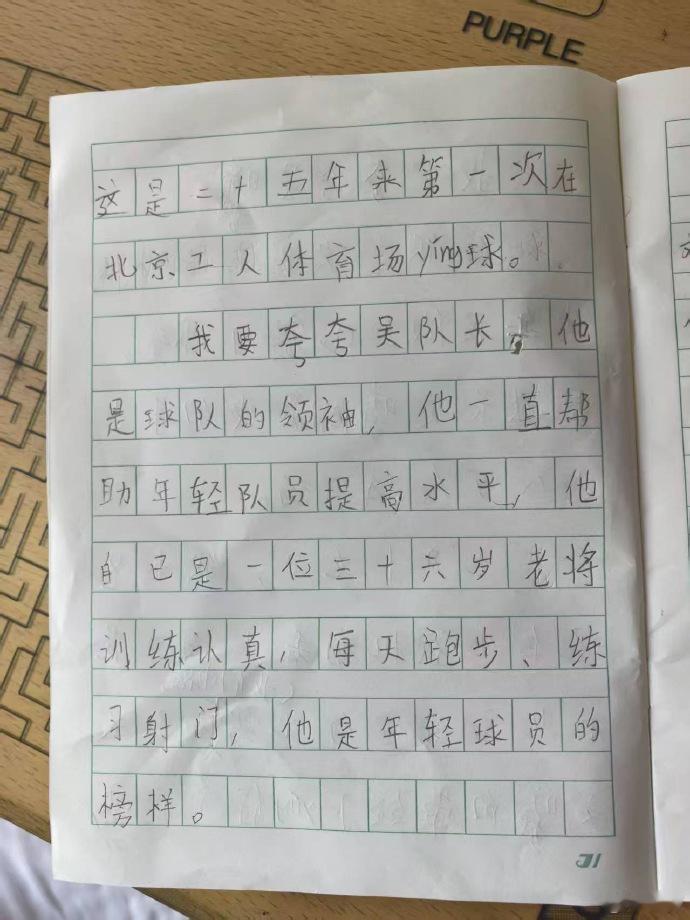 PURPLE
这是二十五年来第一次在
北京工人体育场yíng球。
我要夸夸吴队长，他
是球队的领袖，他一直帮
助年轻队员提高水平，他
自已是一位三十六岁老将
训练认真，每天跑步、练
习射门，他是年轻球员的
榜样。
31